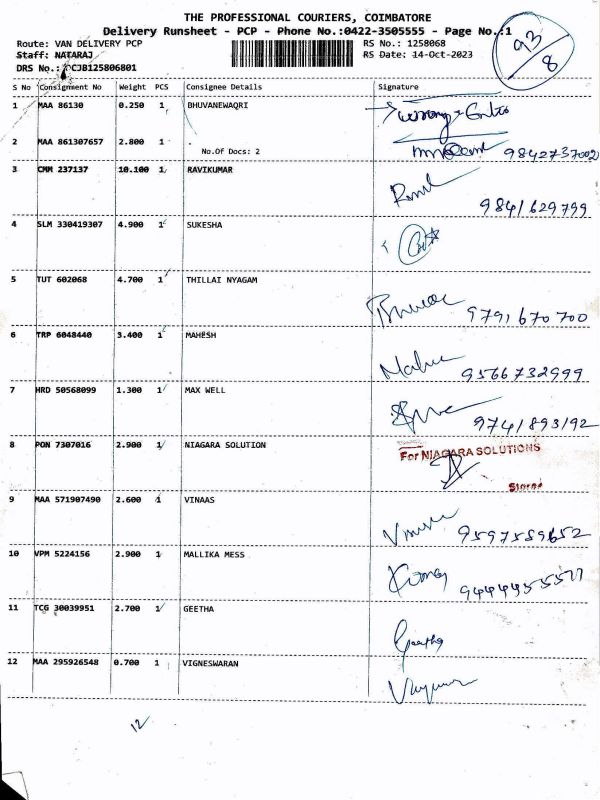 THE PROFESSIONAL COURIERS, COIMBATORE
Delivery Runsheet - PCP - Phone No.:0422-3505555 - Page No.:1
Route: VAN DELIVERY PCP RS No.: 1258068
Staff: NATARAJ RS Date: 14-Oct-2023
DRS No.: CJB125806801
93
8
S No Consignment No Weight PCS Consignee Details Signature
1 MAA 86130 0.250 1 BHUVANEWAQRI
2 MAA 861307657 2.800 1
No.Of Docs: 2
9842737002
3 CMM 237137 10.100 1 RAVIKUMAR
9841629799
4 SLM 330419307 4.900 1 SUKESHA
5 TUT 602068 4.700 1 THILLAI NYAGAM
9791670700
6 TRP 6048440 3.400 1 MAHESH
9566732999
7 HRD 50568099 1.300 1 MAX WELL
9741893192
8 PON 7307016 2.900 1 NIAGARA SOLUTION
For NIAGARA SOLUTIONS
Stores
9 MAA 571907490 2.600 1 VINAAS
9597559652
10 VPM 5224156 2.900 1 MALLIKA MESS
11 TCG 30039951 2.700 1 GEETHA
Geetha
12 MAA 295926548 0.700 1 VIGNESWARAN
12